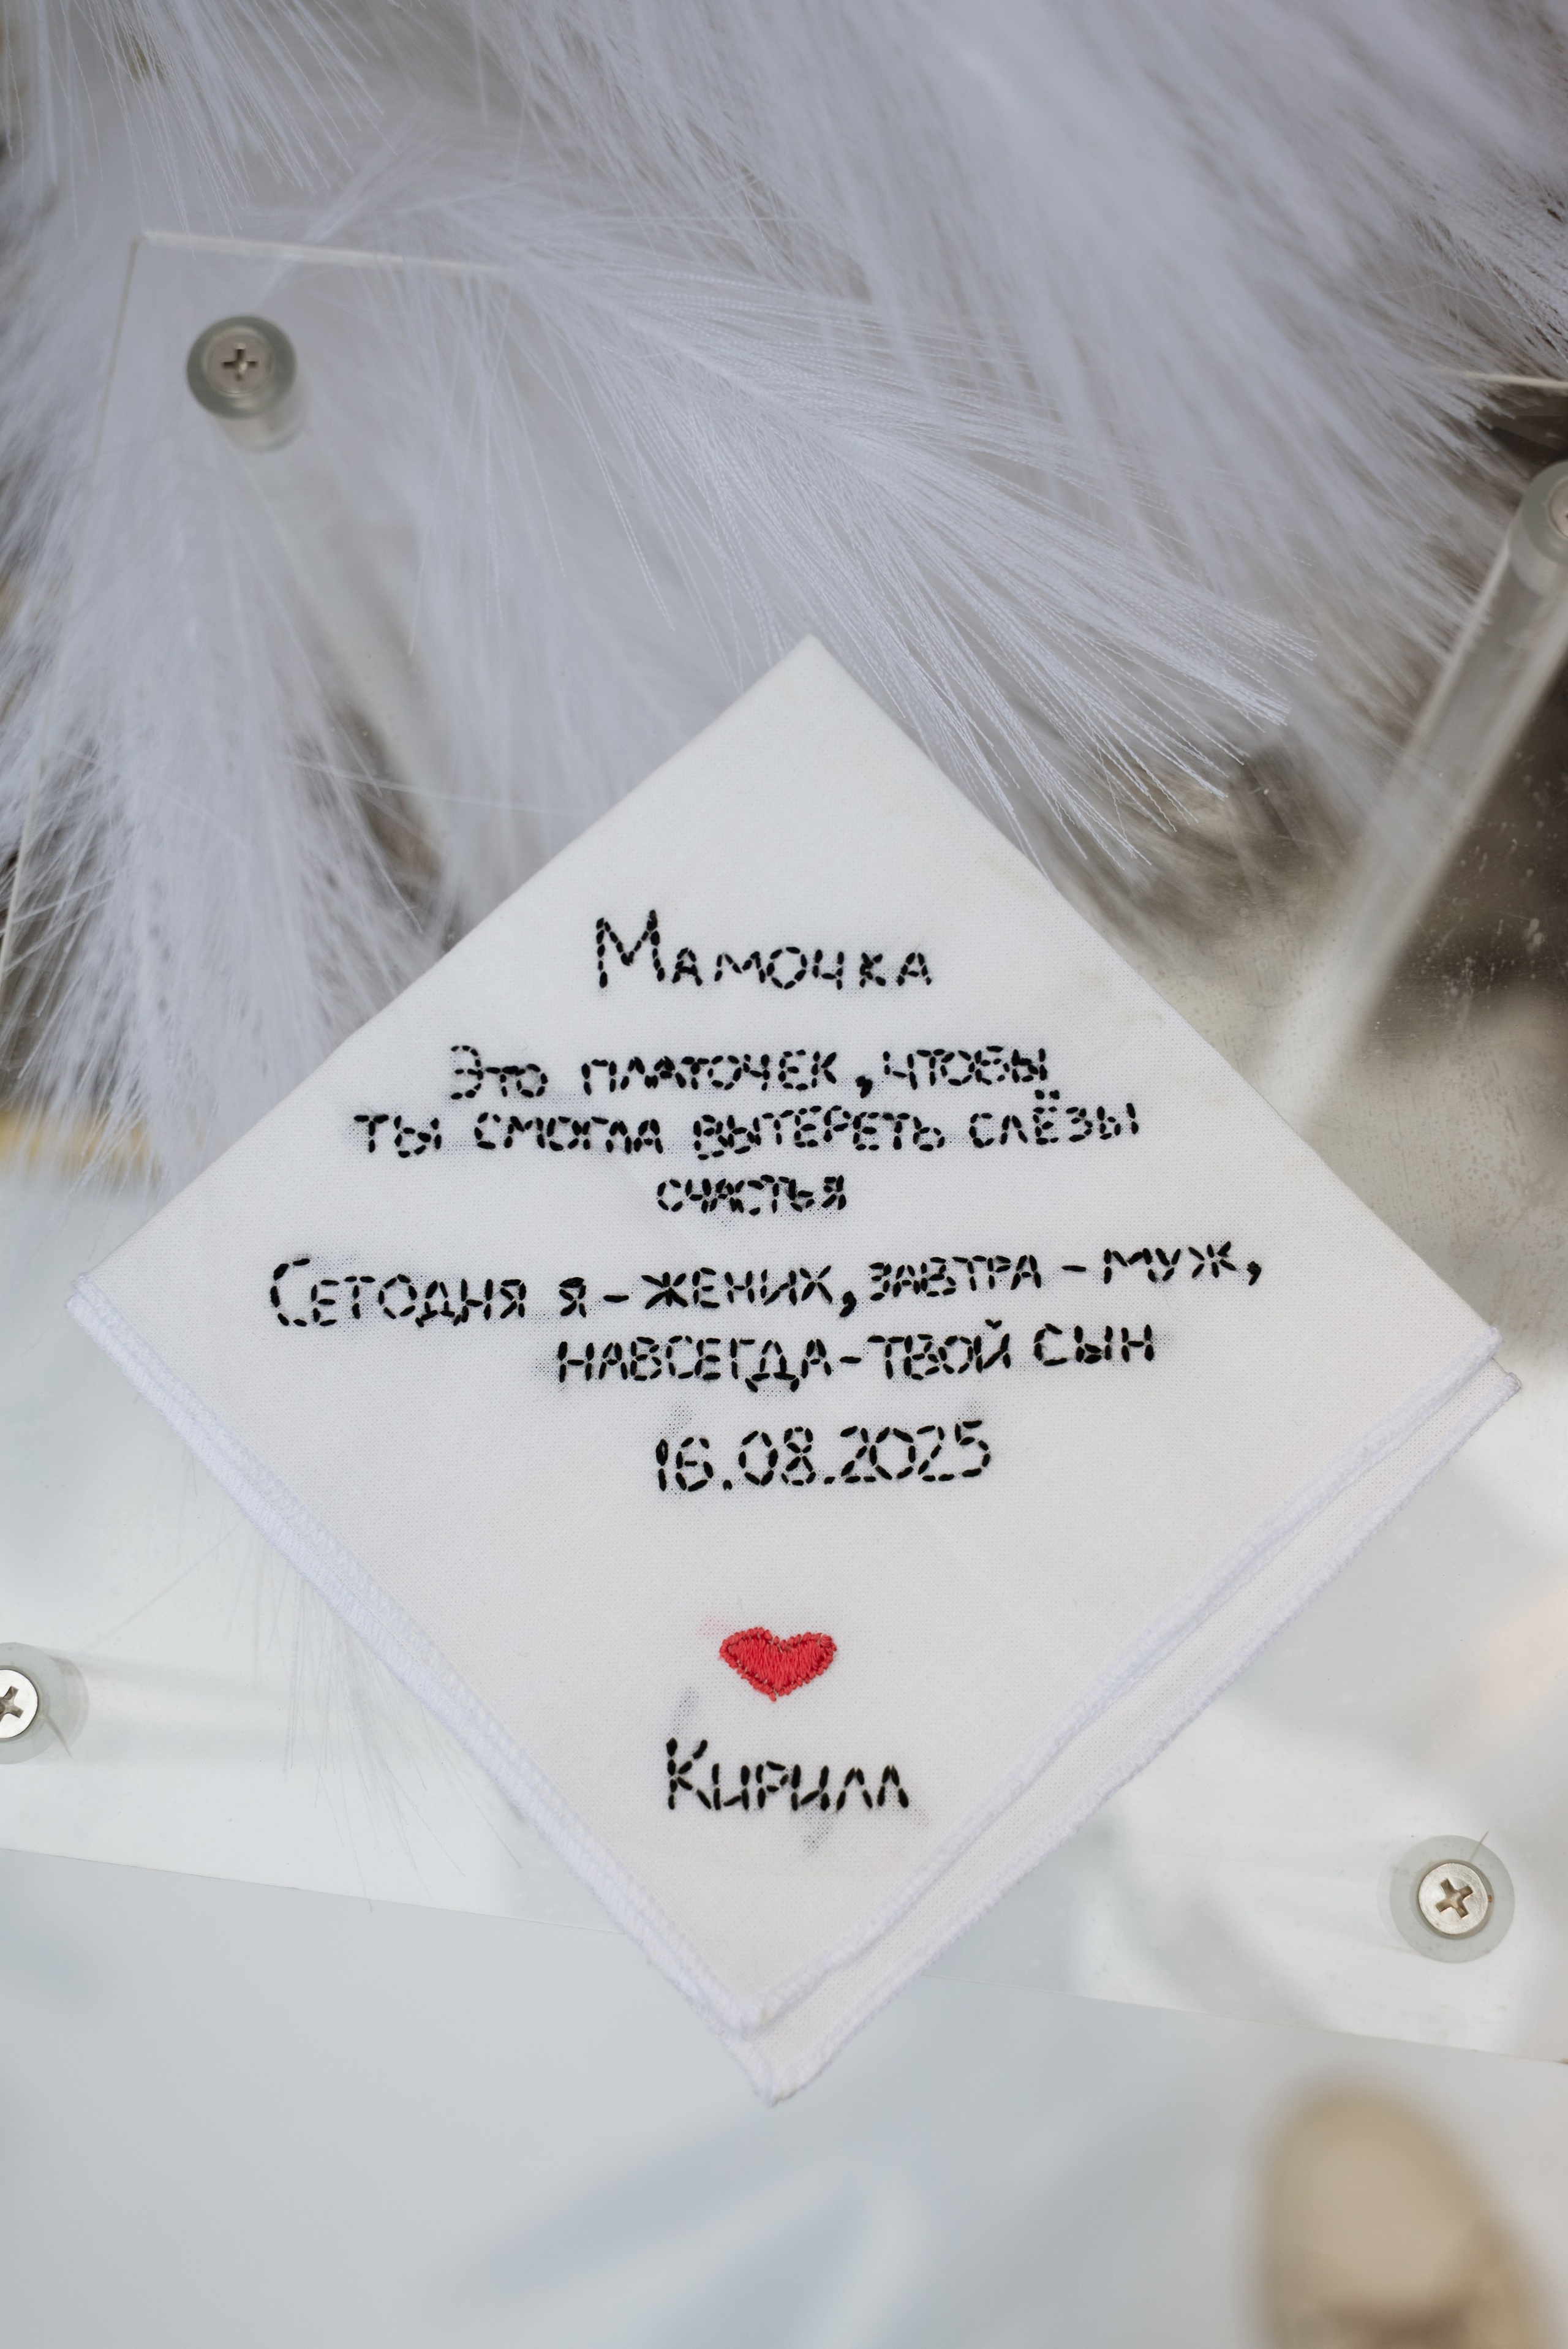 Мамочка
Это платочек, чтобы
ты смогла вытереть слёзы
счастья
Сегодня я - жених, завтра - муж,
навсегда - твой сын
16.08.2025
Кирилл